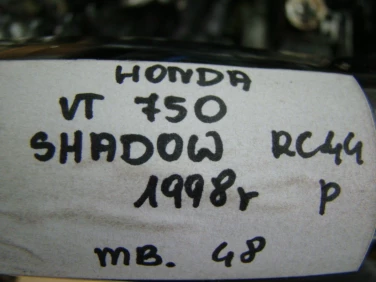 HONDA
VT 750
SHADOW RC44
1998r P
MB. 48